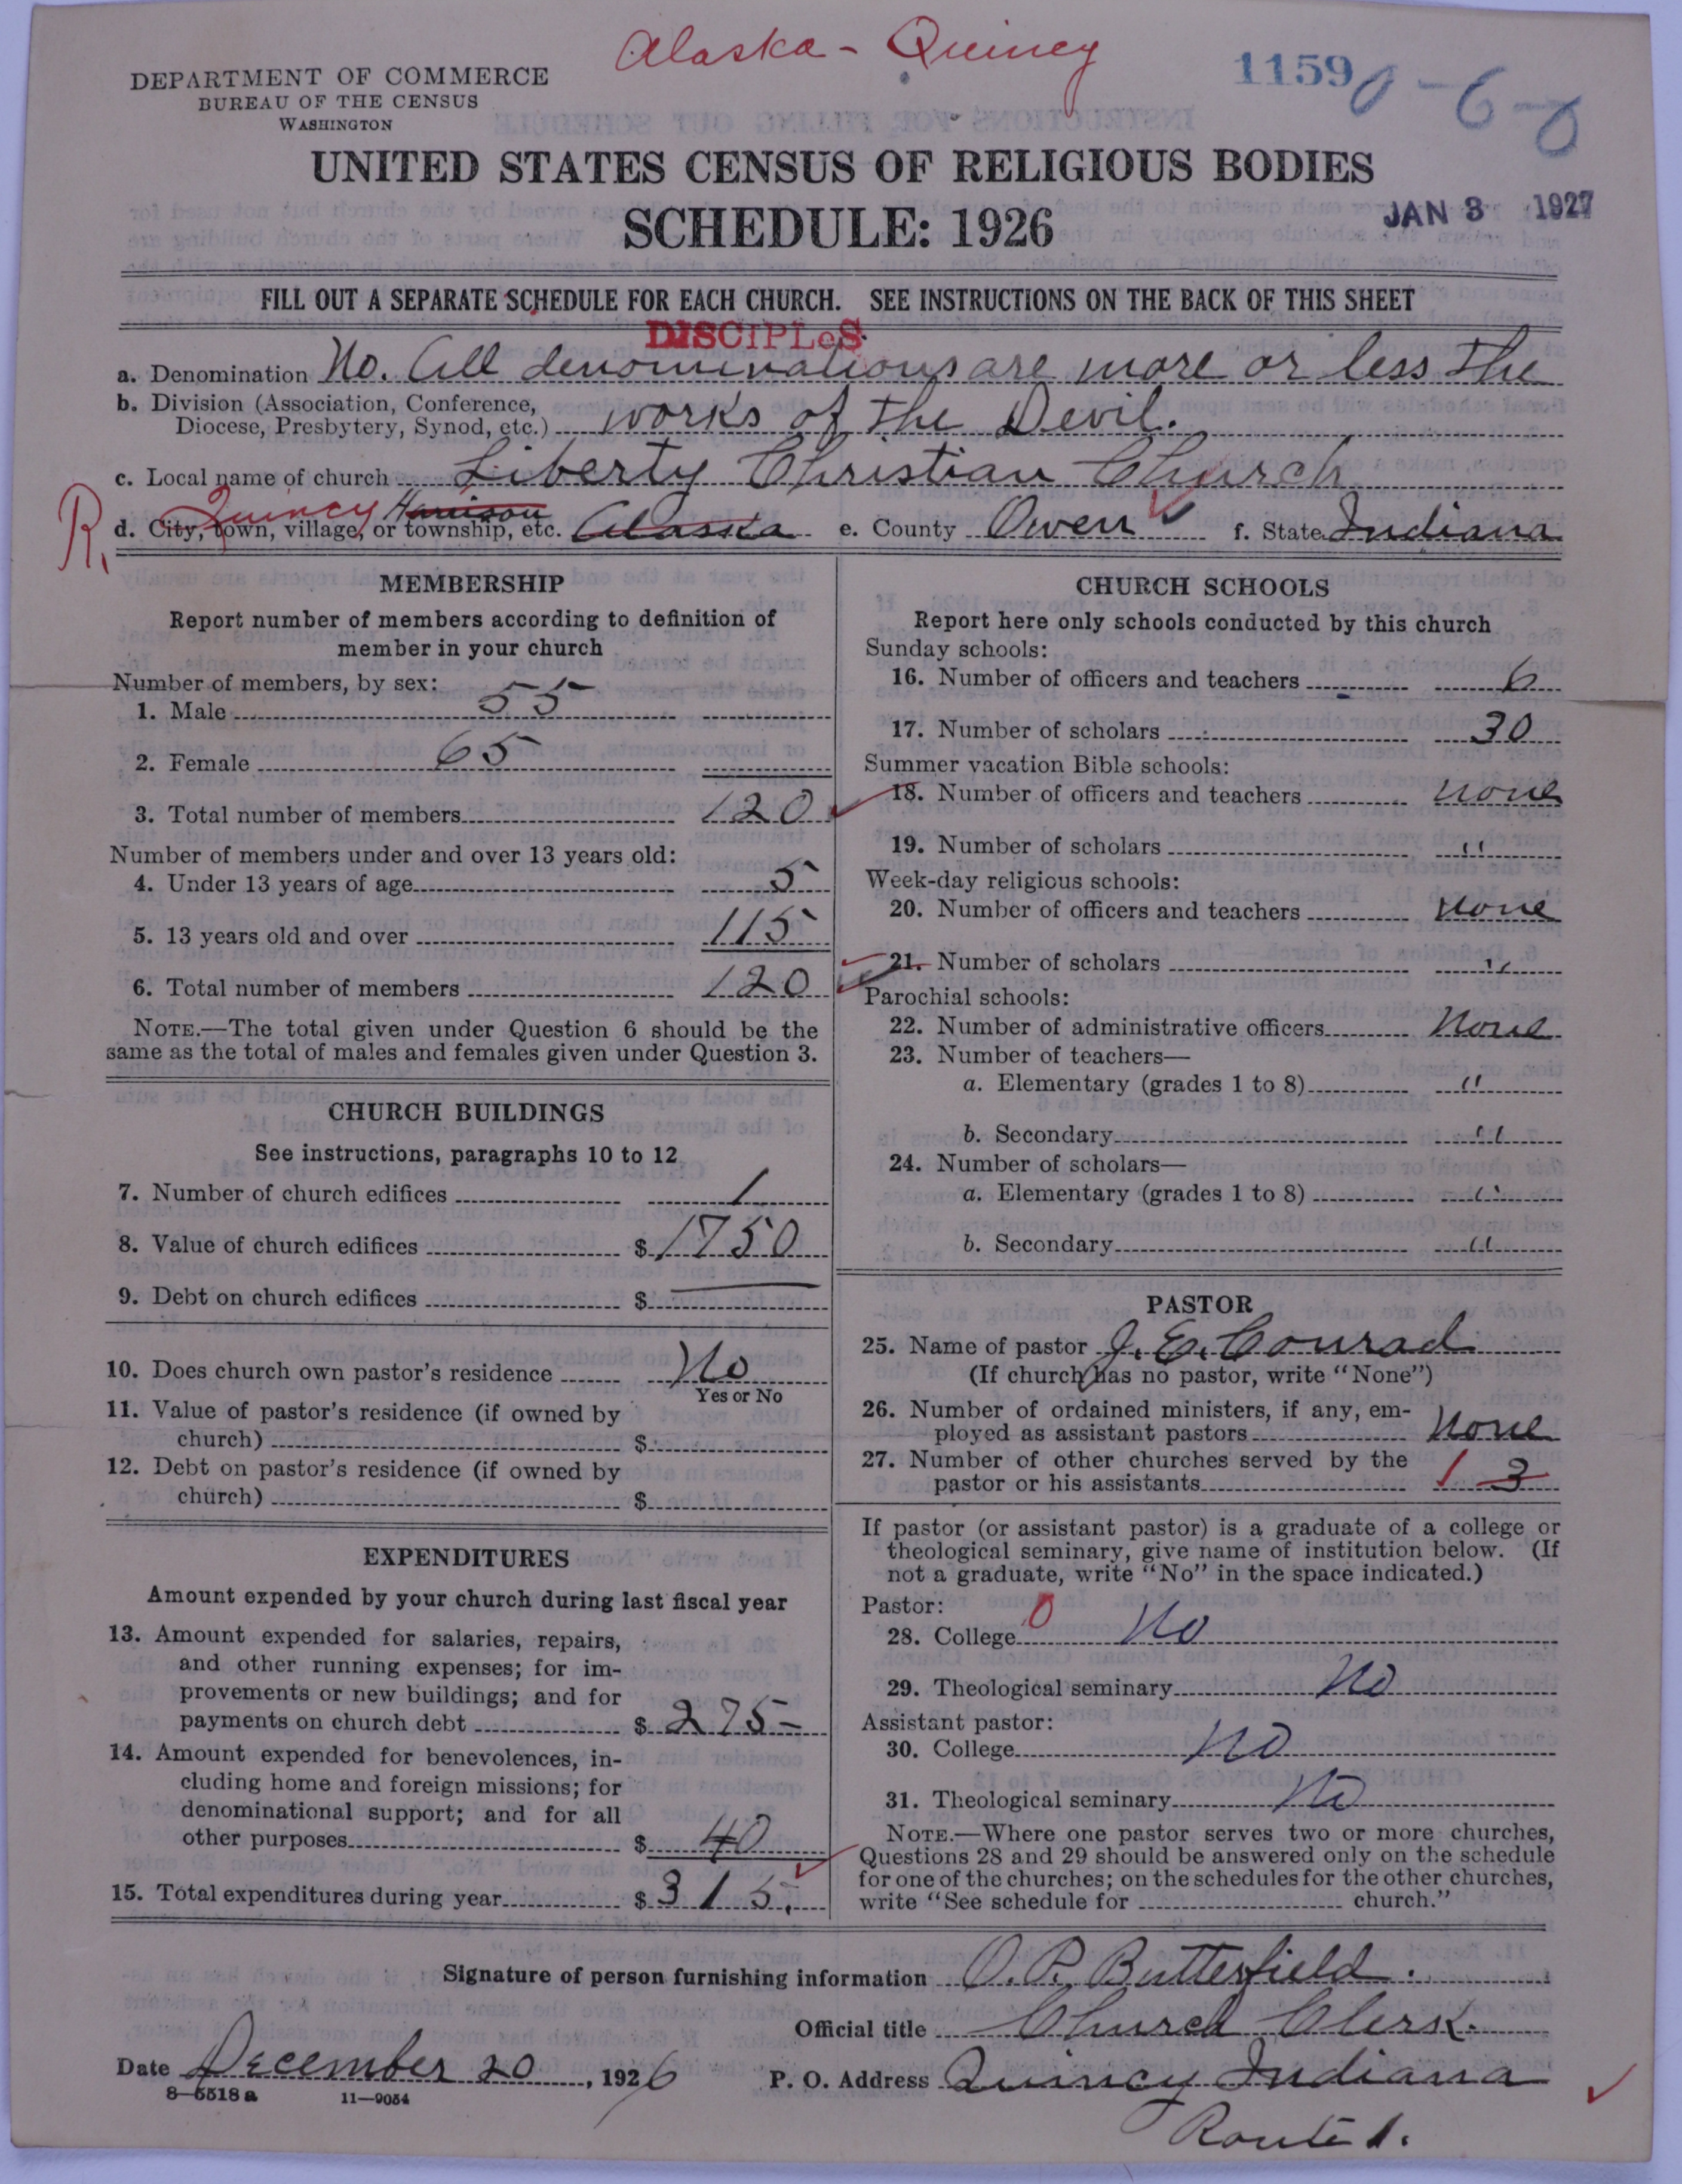 Alaska - Quincy
DEPARTMENT OF COMMERCE
BUREAU OF THE CENSUS
WASHINGTON
1159 0-6-0
UNITED STATES CENSUS OF RELIGIOUS BODIES
SCHEDULE: 1926
JAN 3 1927
FILL OUT A SEPARATE SCHEDULE FOR EACH CHURCH. SEE INSTRUCTIONS ON THE BACK OF THIS SHEET
DISCIPLeS
a. Denomination No. All denominations are more or less the
b. Division (Association, Conference,
Diocese, Presbytery, Synod, etc.) works of the Devil.
c. Local name of church Liberty Christian Church
R. Quincy Harrison
d. City, town, village, or township, etc. Alaska e. County Owen f. State Indiana
MEMBERSHIP
Report number of members according to definition of
member in your church
Number of members, by sex:
1. Male 55
2. Female 65
3. Total number of members 120
Number of members under and over 13 years old:
4. Under 13 years of age 5
5. 13 years old and over 115
6. Total number of members 120
NOTE.—The total given under Question 6 should be the
same as the total of males and females given under Question 3.
CHURCH BUILDINGS
See instructions, paragraphs 10 to 12
7. Number of church edifices 1
8. Value of church edifices $ 1750
9. Debt on church edifices $ —
10. Does church own pastor's residence No
Yes or No
11. Value of pastor's residence (if owned by
church) $
12. Debt on pastor's residence (if owned by
church) $
EXPENDITURES
Amount expended by your church during last fiscal year
13. Amount expended for salaries, repairs,
and other running expenses; for im-
provements or new buildings; and for
payments on church debt $ 275-
14. Amount expended for benevolences, in-
cluding home and foreign missions; for
denominational support; and for all
other purposes $ 40
15. Total expenditures during year $ 315.
CHURCH SCHOOLS
Report here only schools conducted by this church
Sunday schools:
16. Number of officers and teachers 6
17. Number of scholars 30
Summer vacation Bible schools:
18. Number of officers and teachers none
19. Number of scholars "
Week-day religious schools:
20. Number of officers and teachers None
21. Number of scholars "
Parochial schools:
22. Number of administrative officers None
23. Number of teachers—
a. Elementary (grades 1 to 8) "
b. Secondary "
24. Number of scholars—
a. Elementary (grades 1 to 8) "
b. Secondary "
PASTOR
25. Name of pastor J. E. Conrad
(If church has no pastor, write "None")
26. Number of ordained ministers, if any, em-
ployed as assistant pastors None
27. Number of other churches served by the
pastor or his assistants 1 3
If pastor (or assistant pastor) is a graduate of a college or
theological seminary, give name of institution below. (If
not a graduate, write "No" in the space indicated.)
Pastor: 0
28. College No
29. Theological seminary No
Assistant pastor:
30. College No
31. Theological seminary No
NOTE.—Where one pastor serves two or more churches,
Questions 28 and 29 should be answered only on the schedule
for one of the churches; on the schedules for the other churches,
write "See schedule for church."
Signature of person furnishing information O. P. Butterfield.
Official title Church Clerk.
Date December 20, 1926 P. O. Address Quincy Indiana
8-5518a 11-9054
Route 1.